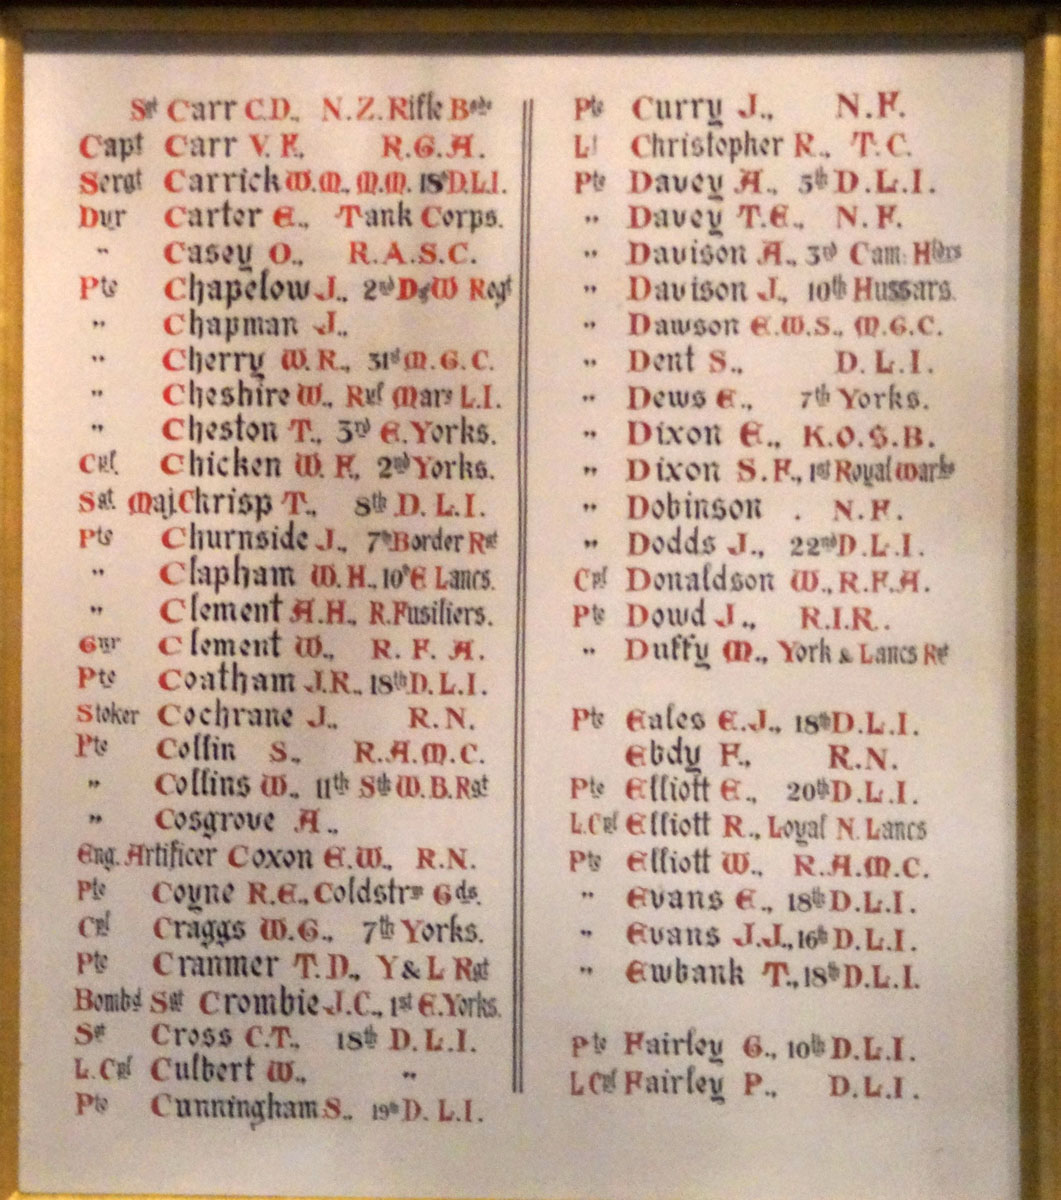 Sgt Carr C.D., N.Z. Rifle Bgde
Capt Carr V. F., R.G.A.
Sergt Carrick W.M., M.M. 18th D.L.I.
Dvr Carter E., Tank Corps.
" Casey O., R.A.S.C.
Pte Chapelow J., 2nd D of W Regt
" Chapman J.,
" Cherry W.R., 31st M.G.C.
" Cheshire W., Ryl Mars L.I.
" Cheston T., 3rd E.Yorks.
Cpl. Chicken W. F., 2nd Yorks.
Sgt. Maj. Chrisp T., 8th D.L.I.
Pte Churnside J., 7th Border Rgt
" Clapham W. H., 10th E Lancs.
" Clement A.H., R.Fusiliers.
Gnr Clement W., R. F. A.
Pte Coatham J.R., 18th D.L.I.
Stoker Cochrane J., R.N.
Pte Collin S., R.A.M.C.
" Collins W., 11th Sth W.B.Rgt
" Cosgrove A.,
Eng. Artificer Coxon E.W., R.N.
Pte Coyne R.E., Coldstrm Gds.
Cpl Craggs W.G., 7th Yorks.
Pte Cranmer T.D., Y & L Rgt
Bombd Sgt Crombie J.C., 1st E.Yorks.
Sgt Cross C.T., 18th D.L.I.
L. Cpl Culbert W., "
Pte Cunningham S., 19th D.L.I.
Pte Curry J., N.F.
Lt Christopher R., T.C.
Pte Davey A., 5th D.L.I.
" Davey T.E., N.F.
" Davison A., 3rd Cam: Hldrs
" Davison J., 10th Hussars.
" Dawson E.W.S., M.G.C.
" Dent S., D.L.I.
" Dews E., 7th Yorks.
" Dixon E., K.O.S.B.
" Dixon S.F., 1st Royal Warks
" Dobinson . N.F.
" Dodds J., 22nd D.L.I.
Cpl Donaldson W., R.F.A.
Pte Dowd J., R.I.R..
" Duffy M., York & Lancs Rgt
Pte Eales E.J., 18th D.L.I.
Ebdy F., R.N.
Pte Elliott E., 20th D.L.I.
L.Cpl Elliott R., Loyal N. Lancs
Pte Elliott W., R.A.M.C.
" Evans E., 18th D.L.I.
" Evans J.J., 16th D.L.I.
" Ewbank T., 18th D.L.I.
Pte Fairley G., 10th D.L.I.
L Cpl Fairley P., D.L.I.